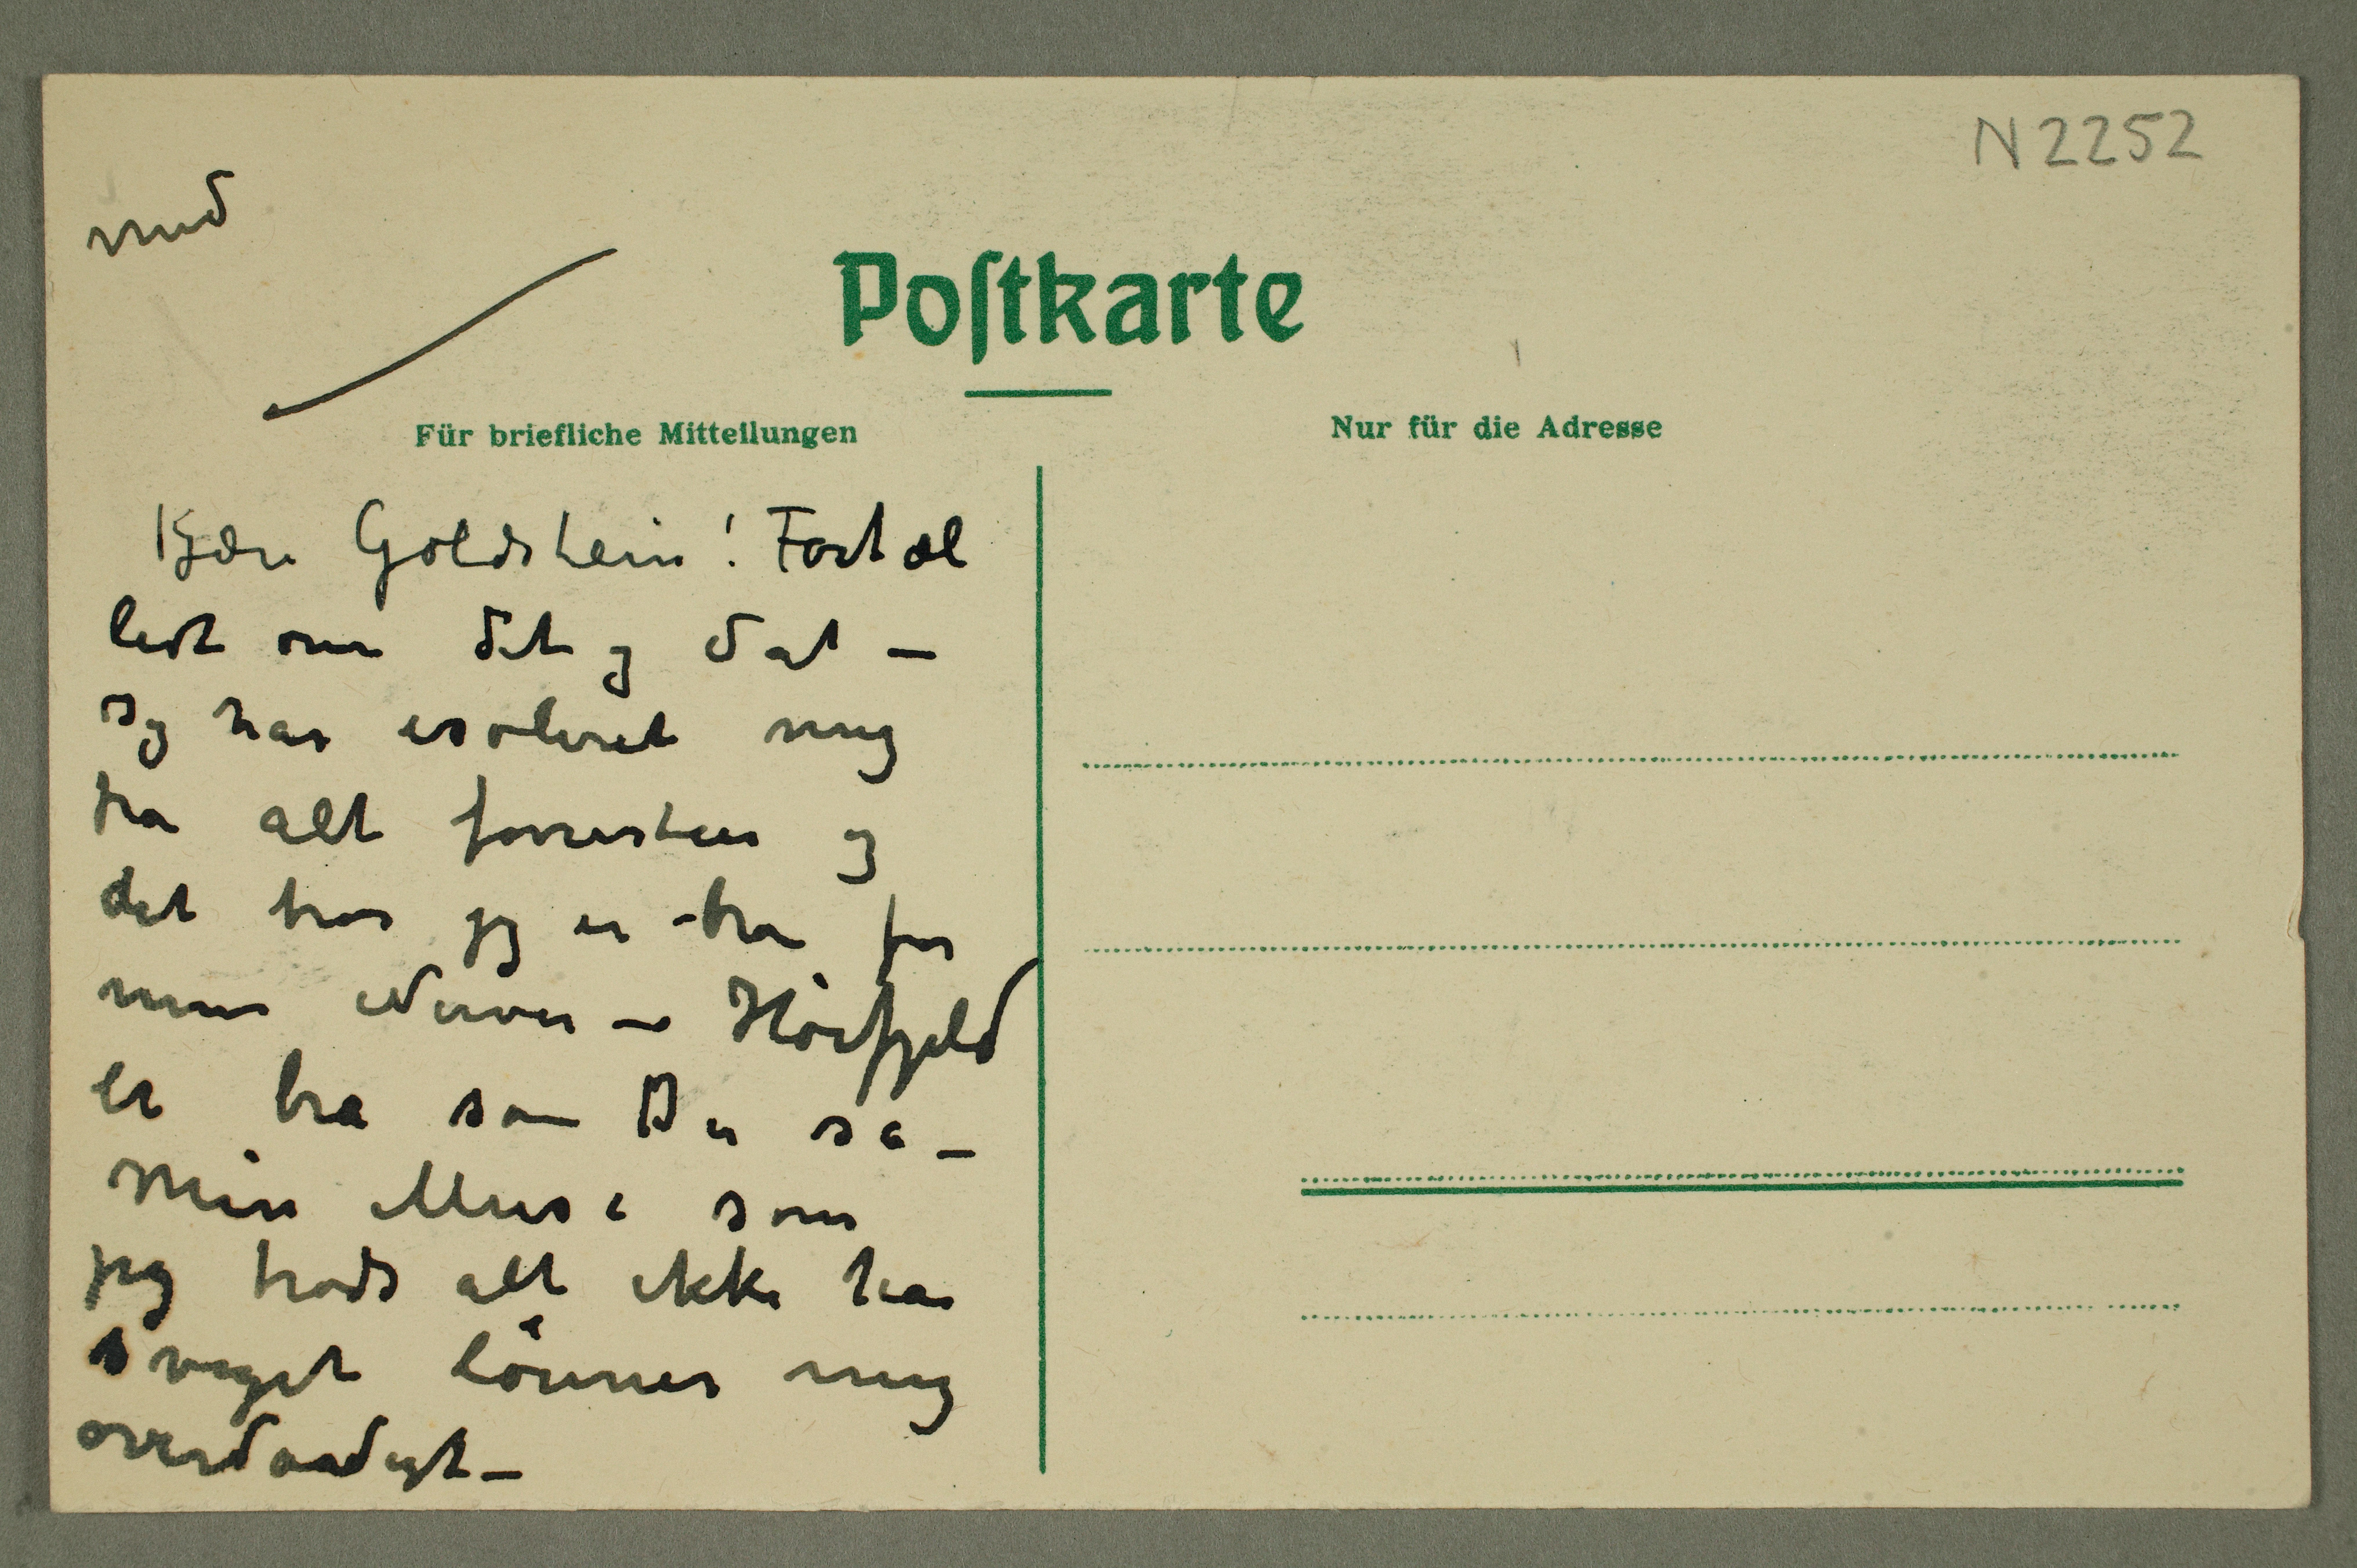 N 2252
med
Postkarte
Für briefliche Mitteilungen
Nur für die Adresse
Kjære Goldstein! Fortæl
lidt om dit og dat –
Jeg har isoleret mig
fra alt forresten og
det tror jeg er bra for
mine Nerver – Höifjeld
er bra som Du sa –
Min Muse som
jeg trods alt ikke har
sveget lönner mig
overdaadigt –